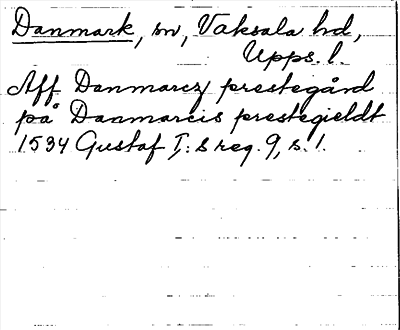 Danmark, sn, Vaksala hd,
Upps. l.
Aff Danmarcz prestegård
på Danmarcis prestegieldt
1534 Gustaf I:s reg. 9, s. 1.